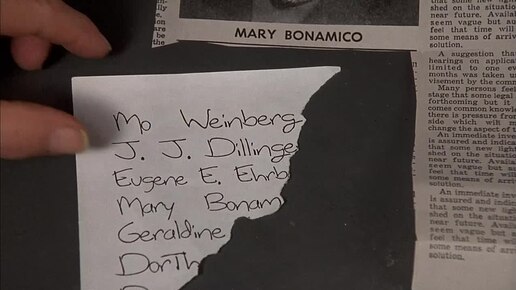 MARY BONAMICO
Mo Weinberg
J. J. Dillinge
Eugene E. Ehrb
Mary Bonam
Geraldine
Doroth
are
be
the
shed on the situation
near future. Availa
seem vague but
feel that time will
some means of arriv
solution.
A suggestion tha
hearings on applicat
limited to one eve
months was taken un
visement by the comm
Many persons feel
stage that some legal
forthcoming but it
comes common knowle
there is pressure from
side which will m
change the aspect of t
An immediate inves
is assured and indica
that some new light
shed on the situation
near future. Availa
seem vague but
feel that time
some means of
solution.
An immediate inves
is assured and indica
that some new light
shed on the situation
near future. Availa
seem vague but
feel that time
some means of arriv
solution.